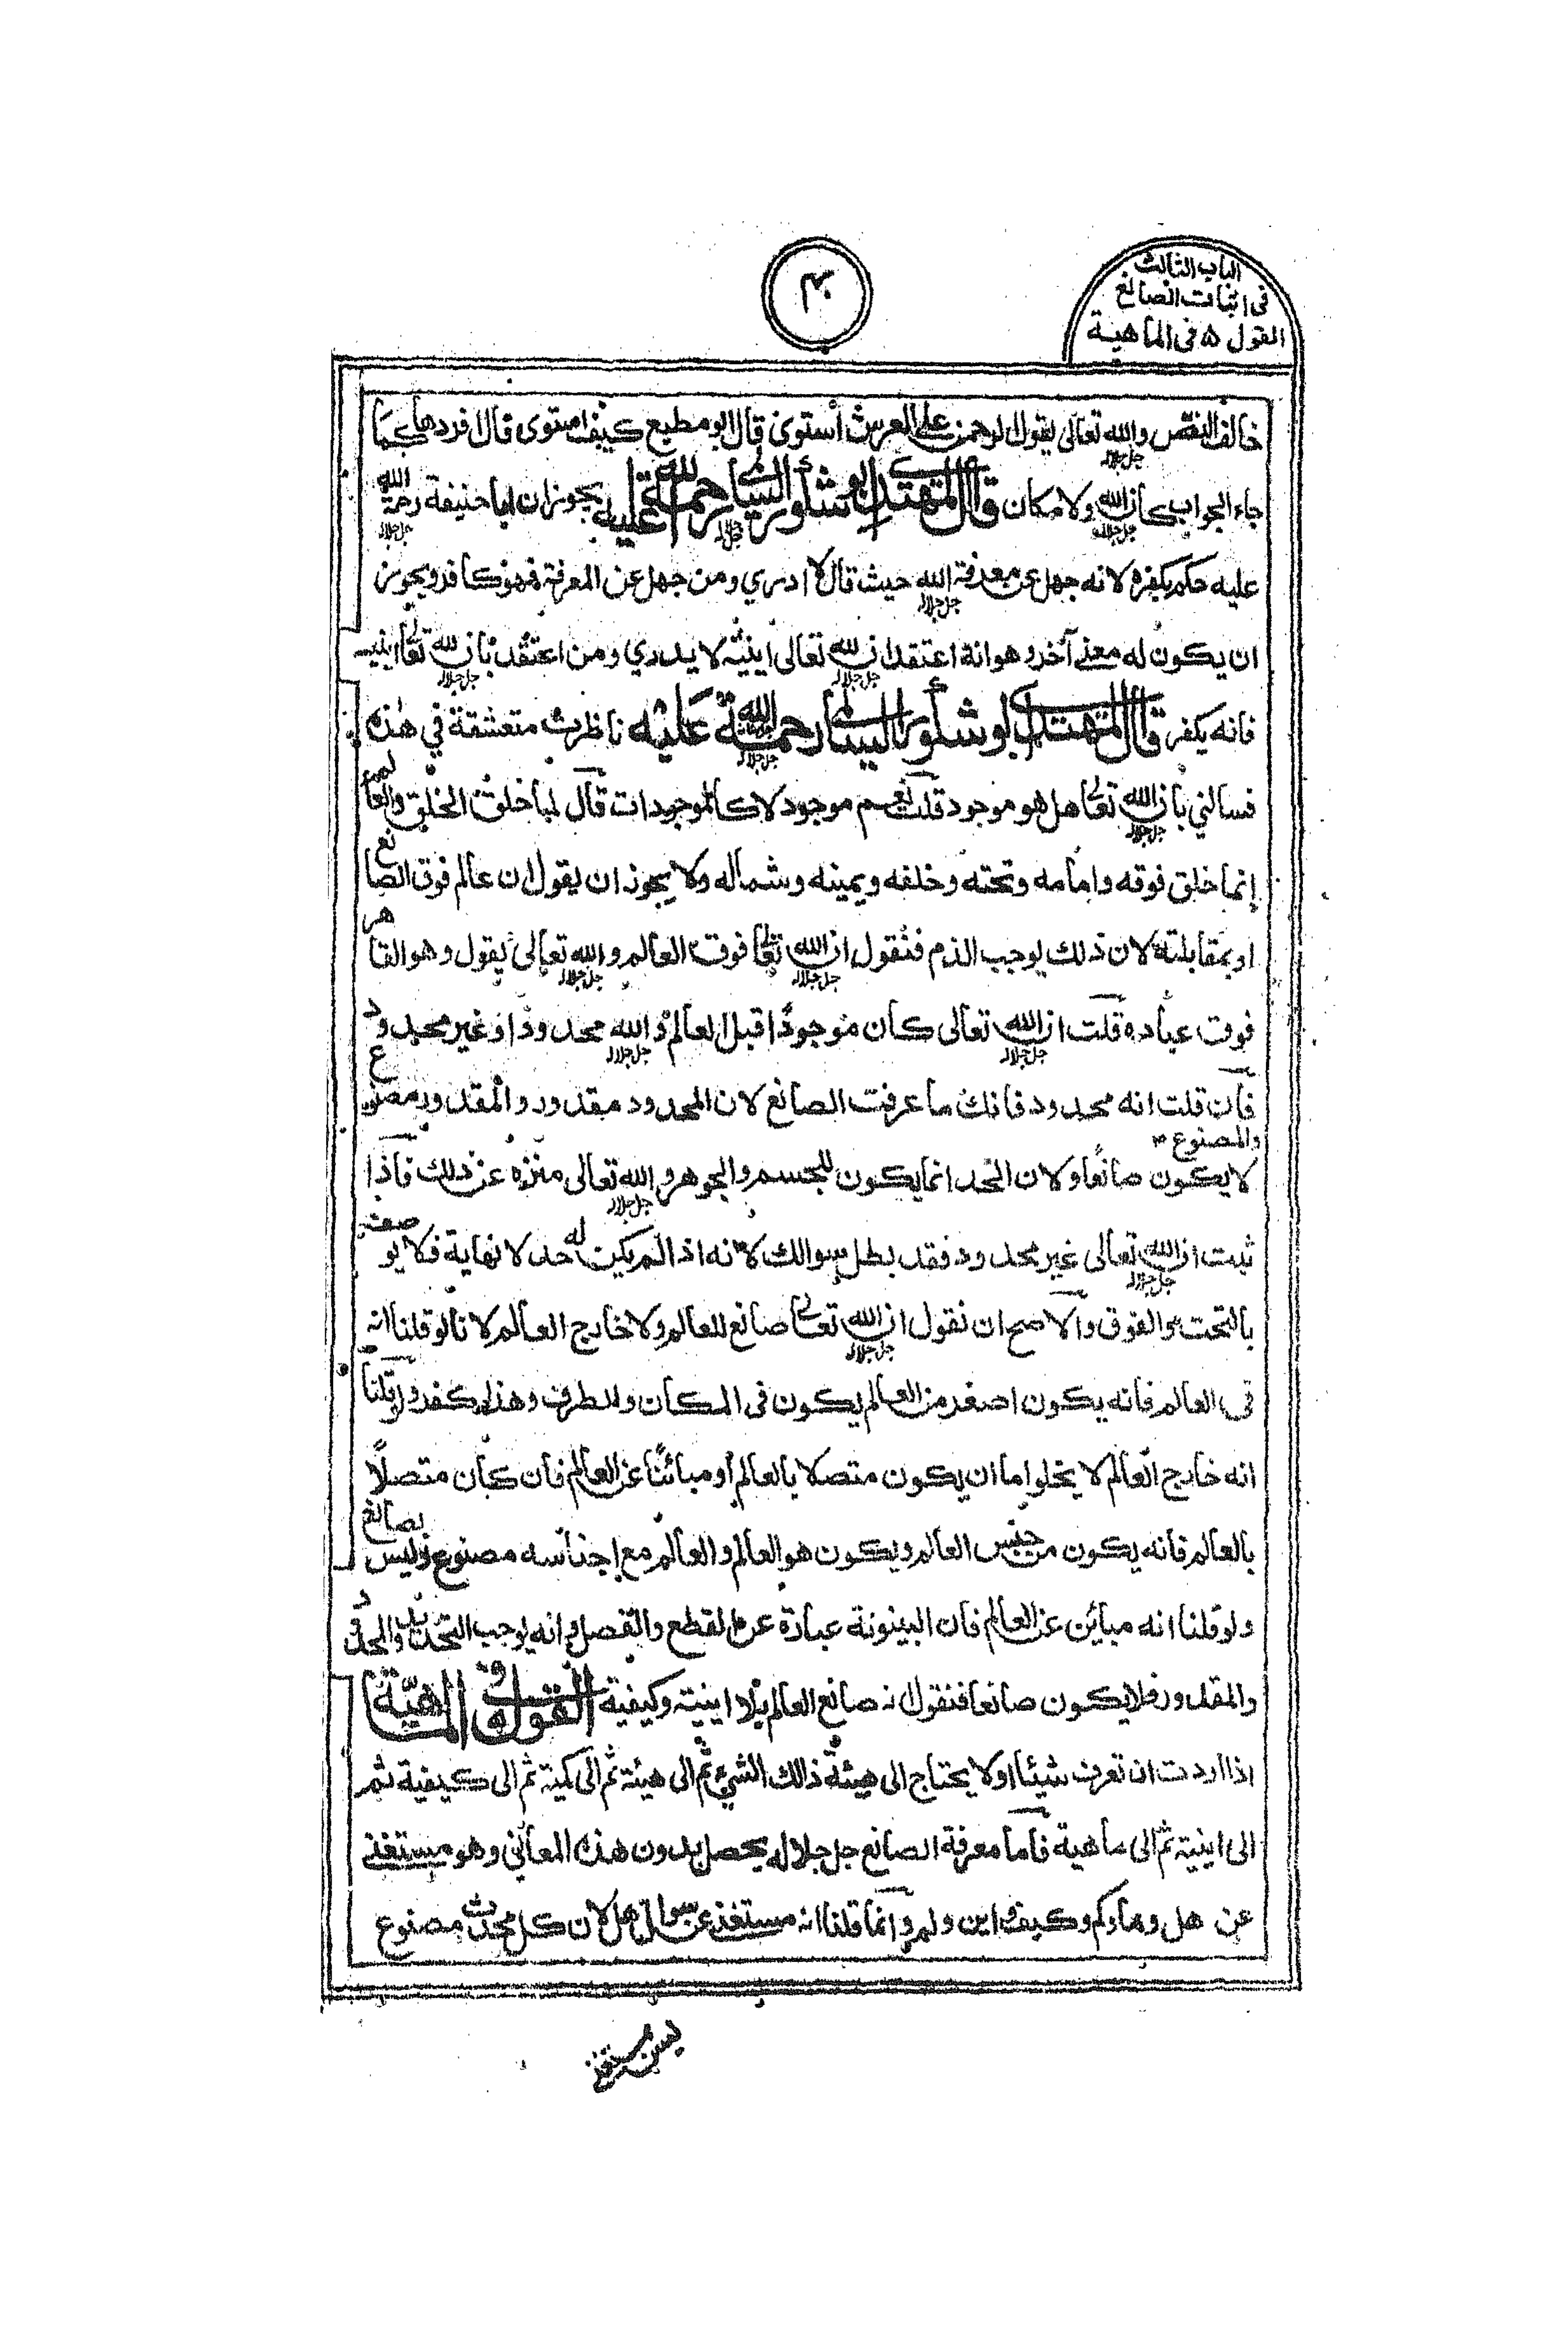 الباب الثالث
في اثبات الصانع
القول ٥ في الماهية
خالف النص والله تعالى يقول الرحمن على العرش استوى قال ابو مطيع كيف استوى قال اقردها كما
جل جلاله
جاء الجواب كان الله ولا مكان قال المهتدي ابو شكور السالمي رحمة الله عليه يجوز ان ابا حنيفة رحمة الله
جل جلاله جل جلاله جل جلاله
عليه حكم بكفره لانه جهل عن معرفة الله حيث قال لا ادري ومن جهل عن المعرفة فهو كافر ويجوز
جل جلاله
ان يكون له معنى آخر وهو انه اعتقد ان لله تعالى اينية لا يدري ومن اعتقد بان لله تعالى اينية
جل جلاله جل جلاله
فانه يكفر قال المهتدي ابو شكور السالمي رحمة الله عليه ناظرت متعشقة في هذه
جل جلاله
فسالني بان الله تعالى هل هو موجود قلت نعم موجود لا كالموجودات قال لما خلق الخلق والعالم
جل جلاله
انما خلق فوقه وامامه وتحته وخلفه ويمينه وشماله ولا يجوز ان يقول ان عالم فوق الصانع
او بمقابلته لان ذلك يوجب الذم فنقول ان الله تعالى فوق العالم والله تعالى يقول وهو القاهر
جل جلاله جل جلاله
فوق عباده قلت ان الله تعالى كان موجودا قبل العالم والله محدودا او غير محدود
جل جلاله جل جلاله
فان قلت انه محدود فانك ما عرفت الصانع لان المحدود مقدور والمقدور مصنوع
والمصنوع
لا يكون صانعا ولان الحد انما يكون للجسم والجوهر والله تعالى منزه عن ذلك فاذا
جل جلاله
ثبت ان الله تعالى غير محدود فقد بطل سوالك لانه اذا لم يكن له حد لا نهاية فلا يوصف
جل جلاله
بالتحت والفوق والاصح ان نقول ان الله تعالى صانع للعالم ولا خارج العالم لانا لو قلنا انه
جل جلاله
في العالم فانه يكون اصغر من العالم يكون في المكان والطرف وهذا كفر ولو قلنا
انه خارج العالم لا يخلو اما ان يكون متصلا بالعالم او مبائنا عن العالم فان كان متصلا
بالعالم فانه يكون من جنس العالم ويكون هو العالم والعالم مع اجناسه مصنوع وليس بصانع
ولو قلنا انه مبائن عن العالم فان البينونة عبارة عن القطع والفصل وانه يوجب التحديد والمحدود
والمقدور فلا يكون صانعا فنقول انه صانع العالم بلا اينية وكيفية القول ٥ في الماهية
اذا اردت ان تعرف شيئا اولا يحتاج الى هيئة ذالك الشيء ثم الى هيئة ثم الى كمية ثم الى كيفية ثم
الى اينية ثم الى ماهية فاما معرفة الصانع جل جلاله يحصل بدون هذه المعاني وهو مستغنى
عن هل وما وكم وكيف واين ولم وانما قلنا انه مستغنى عن سوال هل لان كل محدث مصنوع